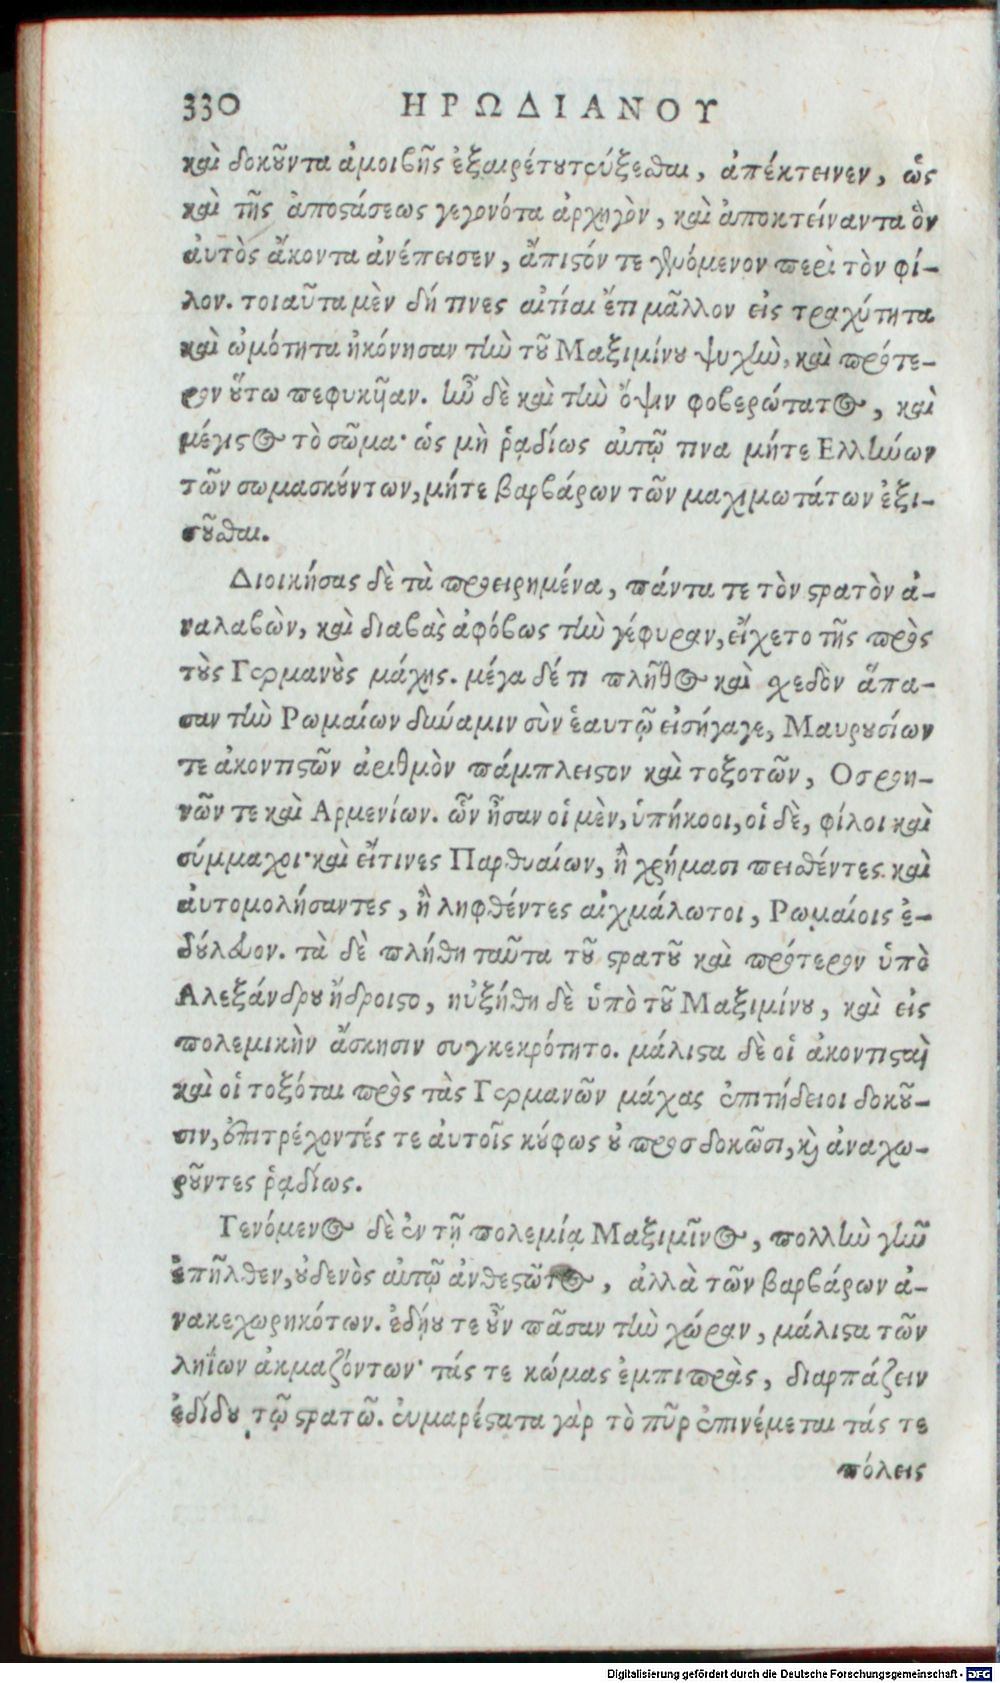 330 ΗΡΩΔΙΑΝΟΥ
καὶ δοκοῦντα ἀμοιβῆς ἐξαιρέτου τεύξεσθαι, ἀπέκτεινεν, ὡς
καὶ τῆς ἀποστάσεως γεγονότα ἀρχηγὸν, καὶ ἀποκτείναντα ὃν
αὐτὸς ἄκοντα ἀνέπεισεν, ἄπιστόν τε γενόμενον περὶ τὸν φί-
λον. τοιαῦτα μὲν δή τινες αἰτίαι ἔτι μᾶλλον εἰς τραχύτητα
καὶ ὠμότητα ἠκόνησαν τὴν τοῦ Μαξιμίνου ψυχὴν, καὶ πρότε-
ρον οὕτω πεφυκῆαν. ἦν δὲ καὶ τὴν ὄψιν φοβερώτατος, καὶ
μέγιστος τὸ σῶμα· ὡς μὴ ῥᾳδίως αὐτῷ τινα μήτε Ελλήνων
τῶν σωμασκούντων, μήτε βαρβάρων τῶν μαχιμωτάτων ἐξι-
σοῦσθαι.
Διοικήσας δὲ τὰ προειρημένα, πάντα τε τὸν στρατὸν ἀ-
ναλαβὼν, καὶ διαβὰς ἀφόβως τὴν γέφυραν, εἴχετο τῆς πρὸς
τοὺς Γερμανοὺς μάχης. μέγα δέ τι πλῆθος καὶ σχεδὸν ἅπα-
σαν τὴν Ρωμαίων δύναμιν σὺν ἑαυτῷ εἰσήγαγε, Μαυρουσίων
τε ἀκοντιστῶν ἀριθμὸν πάμπλειστον καὶ τοξοτῶν, Οσροη-
νῶν τε καὶ Αρμενίων. ὧν ἦσαν οἱ μὲν, ὑπήκοοι, οἱ δὲ, φίλοι καὶ
σύμμαχοι· καὶ εἴτινες Παρθυαίων, ἢ χρήμασι πεισθέντες καὶ
αὐτομολήσαντες, ἢ ληφθέντες αἰχμάλωτοι, Ρωμαίοις ἐ-
δούλευον. τὰ δὲ πλήθη ταῦτα τοῦ στρατοῦ καὶ πρότερον ὑπὸ
Αλεξάνδρου ἤθροιστο, ηὐξήθη δὲ ὑπὸ τοῦ Μαξιμίνου, καὶ εἰς
πολεμικὴν ἄσκησιν συγκεκρότητο. μάλιστα δὲ οἱ ἀκοντισταὶ
καὶ οἱ τοξόται πρὸς τὰς Γερμανῶν μάχας ἐπιτήδειοι δοκοῦ-
σιν, ἐπιτρέχοντές τε αὐτοῖς κούφως οὐ προσδοκῶσι, καὶ ἀναχω-
ροῦντες ῥᾳδίως.
Γενόμενος δὲ ἐν τῇ πολεμίᾳ Μαξιμῖνος, πολλὴν γῆν
ἐπῆλθεν, οὐδενὸς αὐτῷ ἀνθεστῶτος, ἀλλὰ τῶν βαρβάρων ἀ-
νακεχωρηκότων. ἐδῄου τε οὖν πᾶσαν τὴν χώραν, μάλιστα τῶν
ληΐων ἀκμαζόντων· τάς τε κώμας ἐμπιπρὰς, διαρπάζειν
ἐδίδου τῷ στρατῷ. εὐμαρέστατα γὰρ τὸ πῦρ ἐπινέμεται τάς τε
πόλεις
Digitalisierung gefördert durch die Deutsche Forschungsgemeinschaft - DFG